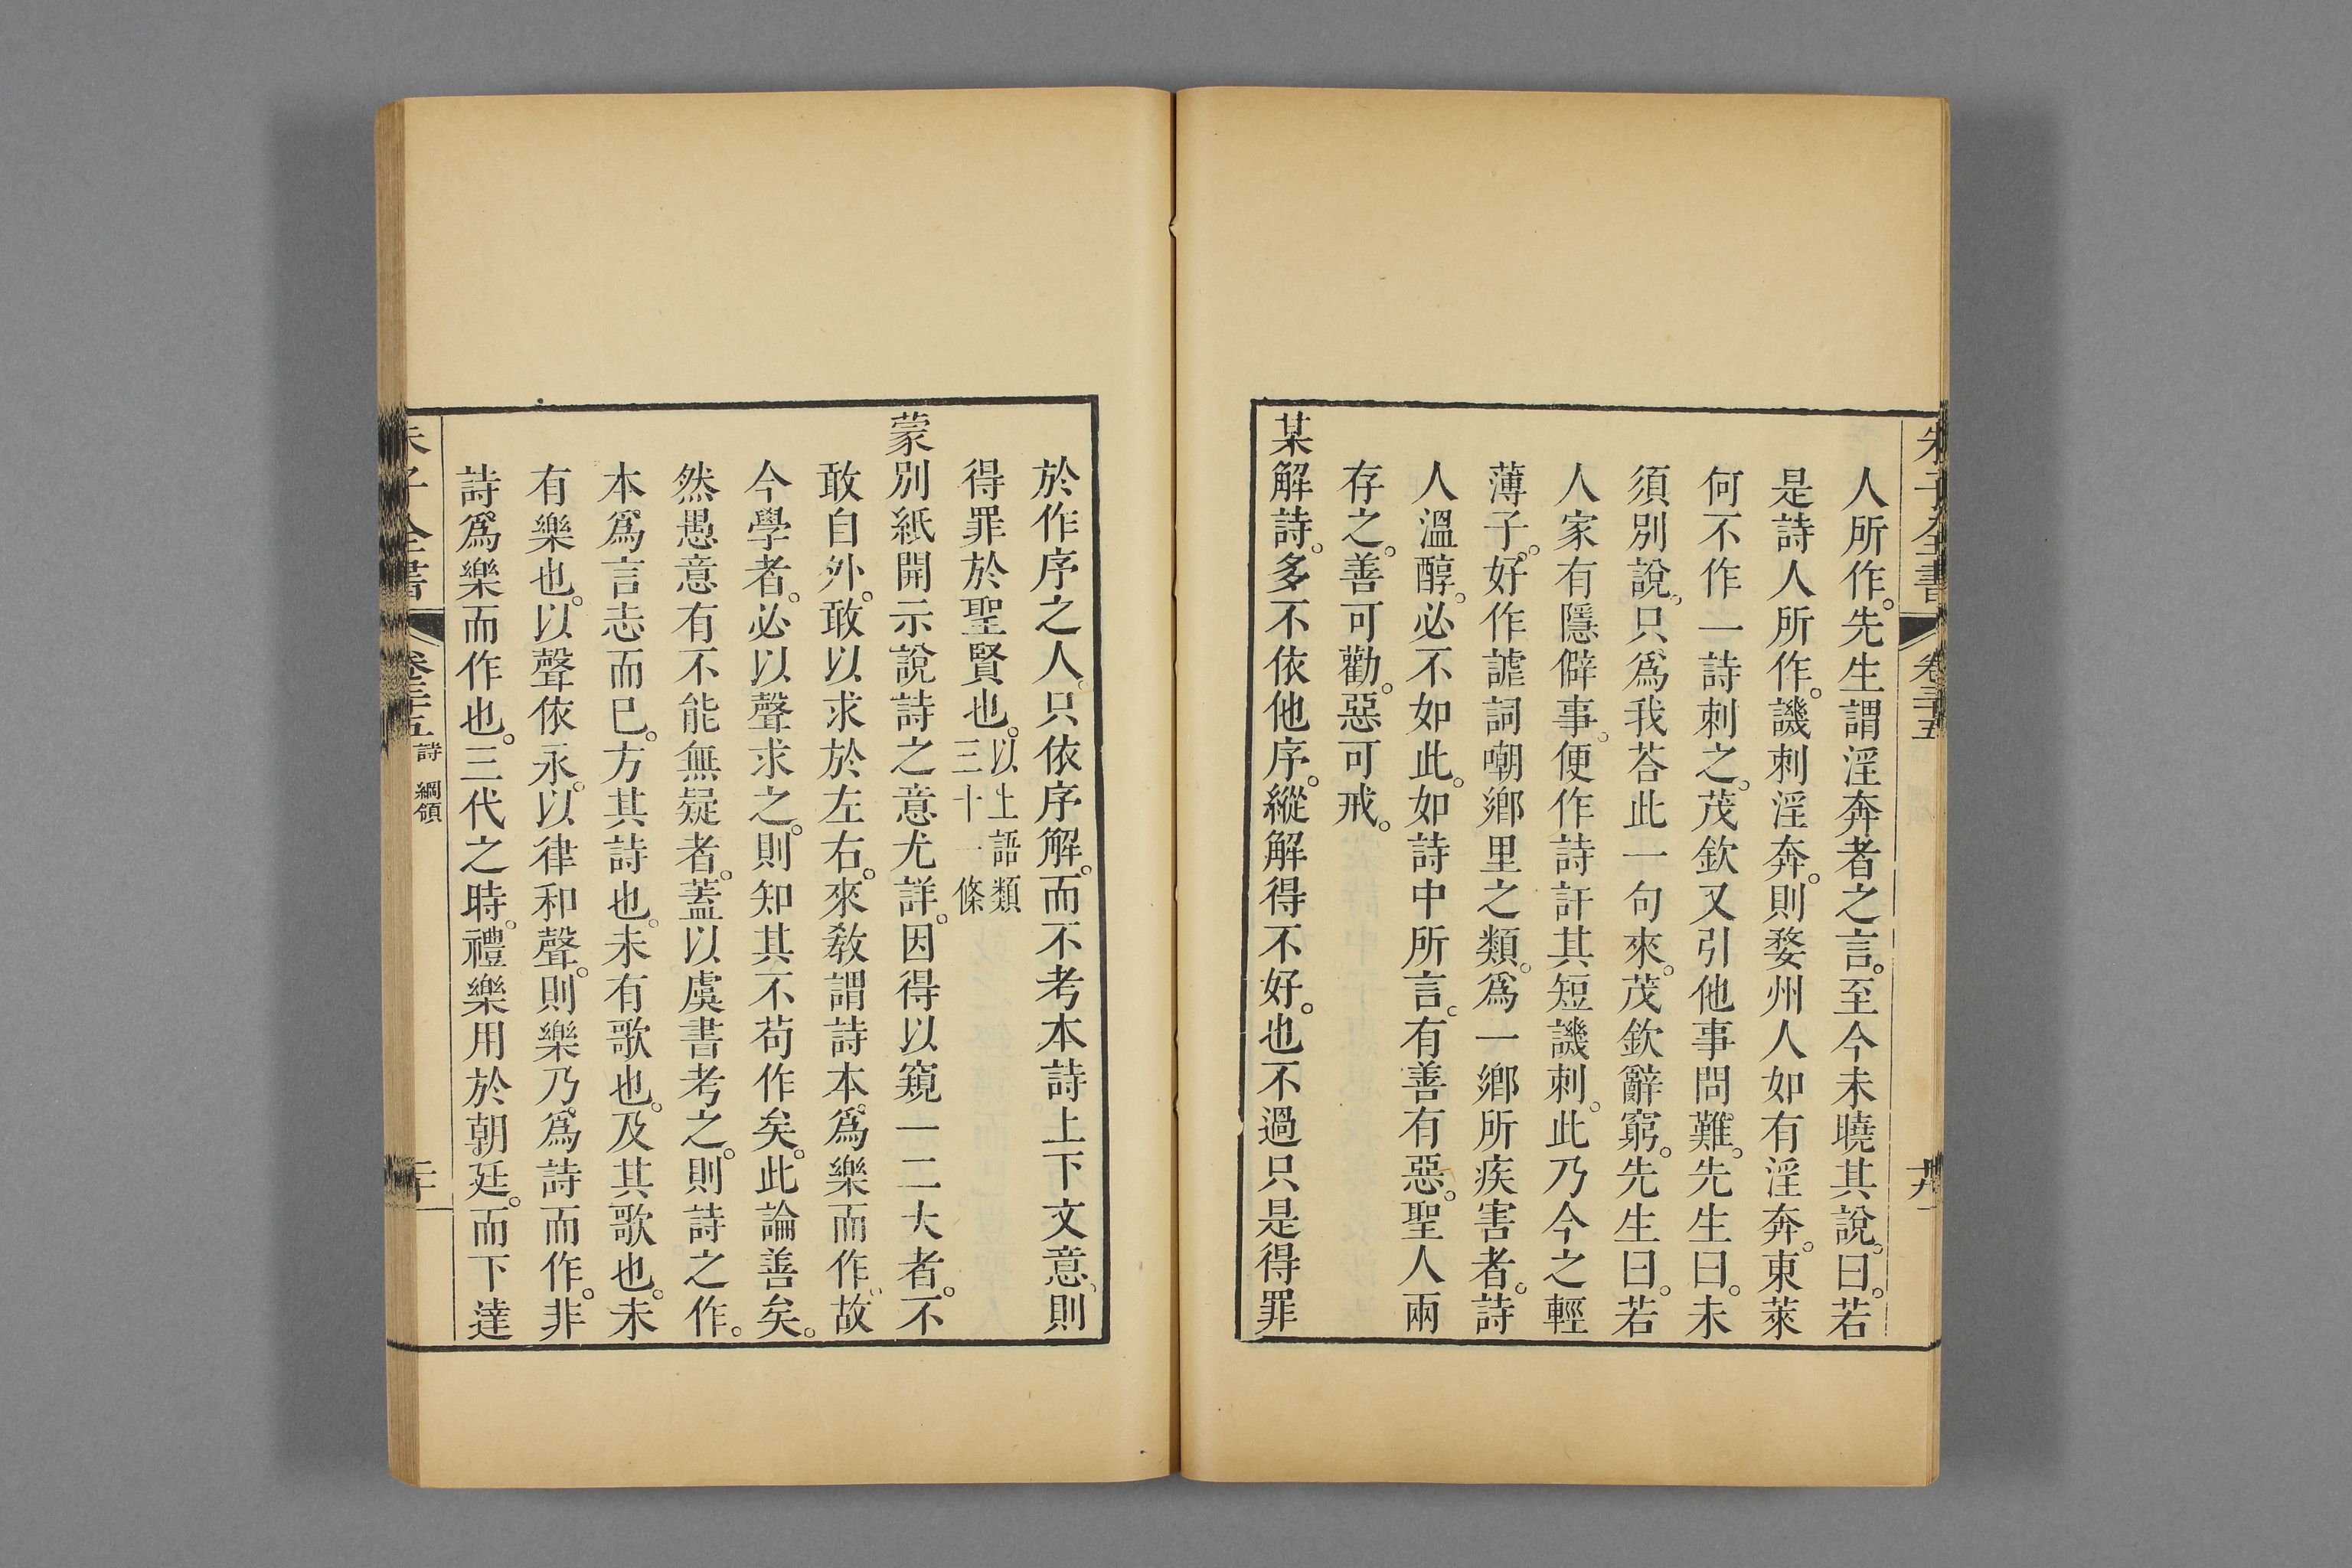 朱子全書 卷三十五 十九
人所作。先生謂淫奔者之言。至今未曉其說。曰。若
是詩人所作。譏刺淫奔。則婺州人如有淫奔。東萊
何不作一詩刺之。茂欽又引他事問難。先生曰。未
須別說。只爲我荅此一句來。茂欽辭窮。先生曰。若
人家有隱僻事。便作詩訐其短譏刺。此乃今之輕
薄子。好作謔詞嘲鄉里之類。爲一鄉所疾害者。詩
人溫醇。必不如此。如詩中所言。有善有惡。聖人兩
存之。善可勸。惡可戒。
某解詩。多不依他序。縱解得不好。也不過只是得罪
於作序之人。只依序解。而不考本詩上下文意。則
得罪於聖賢也。以上語類三十一條
蒙別紙開示說詩之意尤詳。因得以窺一二大者。不
敢自外。敢以求於左右。來敎謂詩本爲樂而作。故
今學者。必以聲求之。則知其不苟作矣。此論善矣。
然愚意有不能無疑者。蓋以虞書考之。則詩之作。
本爲言志而已。方其詩也。未有歌也。及其歌也。未
有樂也。以聲依永。以律和聲。則樂乃爲詩而作。非
詩爲樂而作也。三代之時。禮樂用於朝廷。而下達
朱子全書 卷三十五 詩 綱領 二十